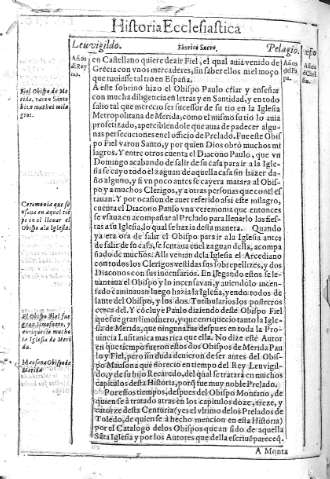 Historia Ecclesiastica
Leuvigildo.
Pelagio.
en Castellano quiere dezir Fiel, el qual auia venido de
Grecia con vnos mercaderes, sin saber ellos ni el moço
que tuuiesse tal tio en España.
A este sobrino hizo el Obispo Paulo criar y enseñar
con mucha diligencia en letras y en Santidad, y en todo
salio tal que merecio ser sucessor de su tio en la Iglesia
Metropolitana de Merida, como el mismo su tio lo auia
profetizado, apercibiendole que auia de padecer algu-
nas persecuciones en el oficio de Prelado. Fue este Obis
po Fiel varon Santo, y por quien Dios obró muchos mi
lagros. Y entre otros cuenta el Diacono Paulo, que vn
Domingo acabando de salir de su casa para ir a la Igle
sia se cayo todo el
daño alguno, y si vn poco antes se cayera matara al Obis-
po y a muchos Clerigos, y a otras personas que con el es
tauan. Y por ocasion de auer referido assi este milagro,
cuenta el Diacono Paulo vna ceremonia que entonces
se vsaua en acompañar al Prelado para llenarlo las fies-
tas a la Iglesia, lo qual se hazia desta manera. Quando
ya era ora de salir el Obispo para ir a la Iglesia antes
de salir de su casa, se sentaua en el desta, acompa
ñado de muchos: Alli venian de la Iglesia el Arcediano
con todos los Clerigos vestidas sus sobrepellizes, y dos
Diaconos con sus incensarios. En llegando estos se le-
uantaua el Obispo y lo incensauan, y auiendolo incen-
sado caminauan luego hazia la Iglesia, yendo todos de
lante del Obispo, y los dos Turibularios los postreros
cerca del. Y cõcluye Paulo diziendo deste Obispo Fiel
que fue gran limosnero, y que enriquecio tanto la Igle-
sia de Merida, que ninguna fue despues en toda la Pro
uincia Lusitana mas rica que ella. No dize este Autor
en que tiempo fueron estos dos Obispos de Merida Pau
lo y Fiel, pero sin duda uieron de ser antes del Obis-
po Mausona que florecio en tiempo del Rey Leuvigil-
do, y de su hijo Recaredo, del qual se tratará en muchos
capitulos desta Historia, porq̃ fue muy noble Prelado.
Por estos tiempos, despues del Obispo Montano, de
quien se á tratado atras en los capitulos doze, treze, y
catorze desta Centuria (y es el vltimo de los Prelados de
Toledo, de quien se á hecho mencion en esta Historia)
por el Catalogo delos Obispos que an sido de aquella
Sãta Iglesia y por los Autores que della escriuẽ parece q̃
A Monta
Fiel Obispo de Me
rida, varon Santo
hizo muchos mila
gros.
Ceremonia que se
vsaua en aquel tiẽ
po en el lleuar el
Obispo a la Iglesia.
El Obispo Fiel fue
gran limosnero, y
enriquecio mu-
cho la Iglesia de Me
rida.
Mausona Obispo de
Merida